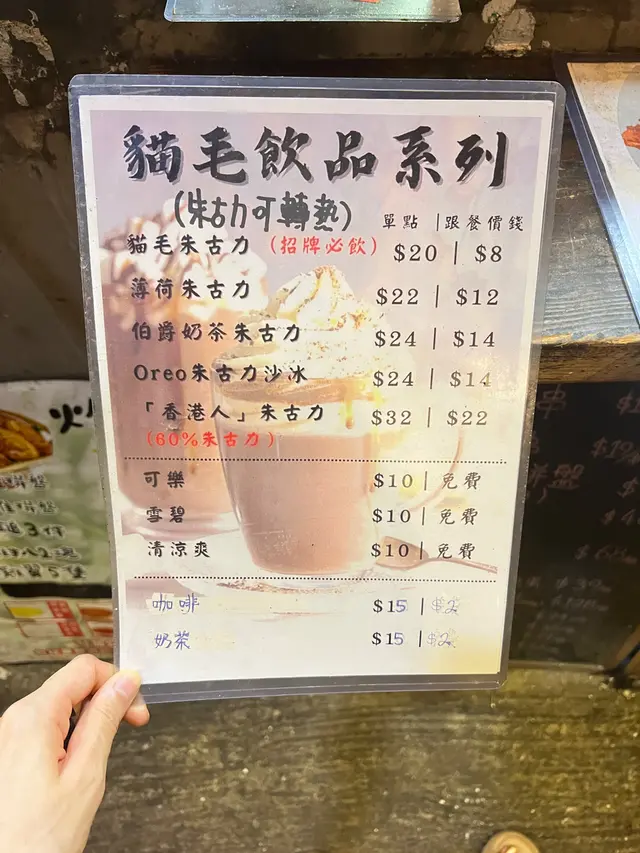 貓毛飲品系列
(朱古力可轉熱)
單點 | 跟餐價錢
貓毛朱古力 (招牌必飲) $20 | $8
薄荷朱古力 $22 | $12
伯爵奶茶朱古力 $24 | $14
Oreo朱古力沙冰 $24 | $14
「香港人」朱古力 $32 | $22
(60%朱古力)
可樂 $10 | 免費
雪碧 $10 | 免費
清涼爽 $10 | 免費
咖啡 $15 | $2
奶茶 $15 | $2